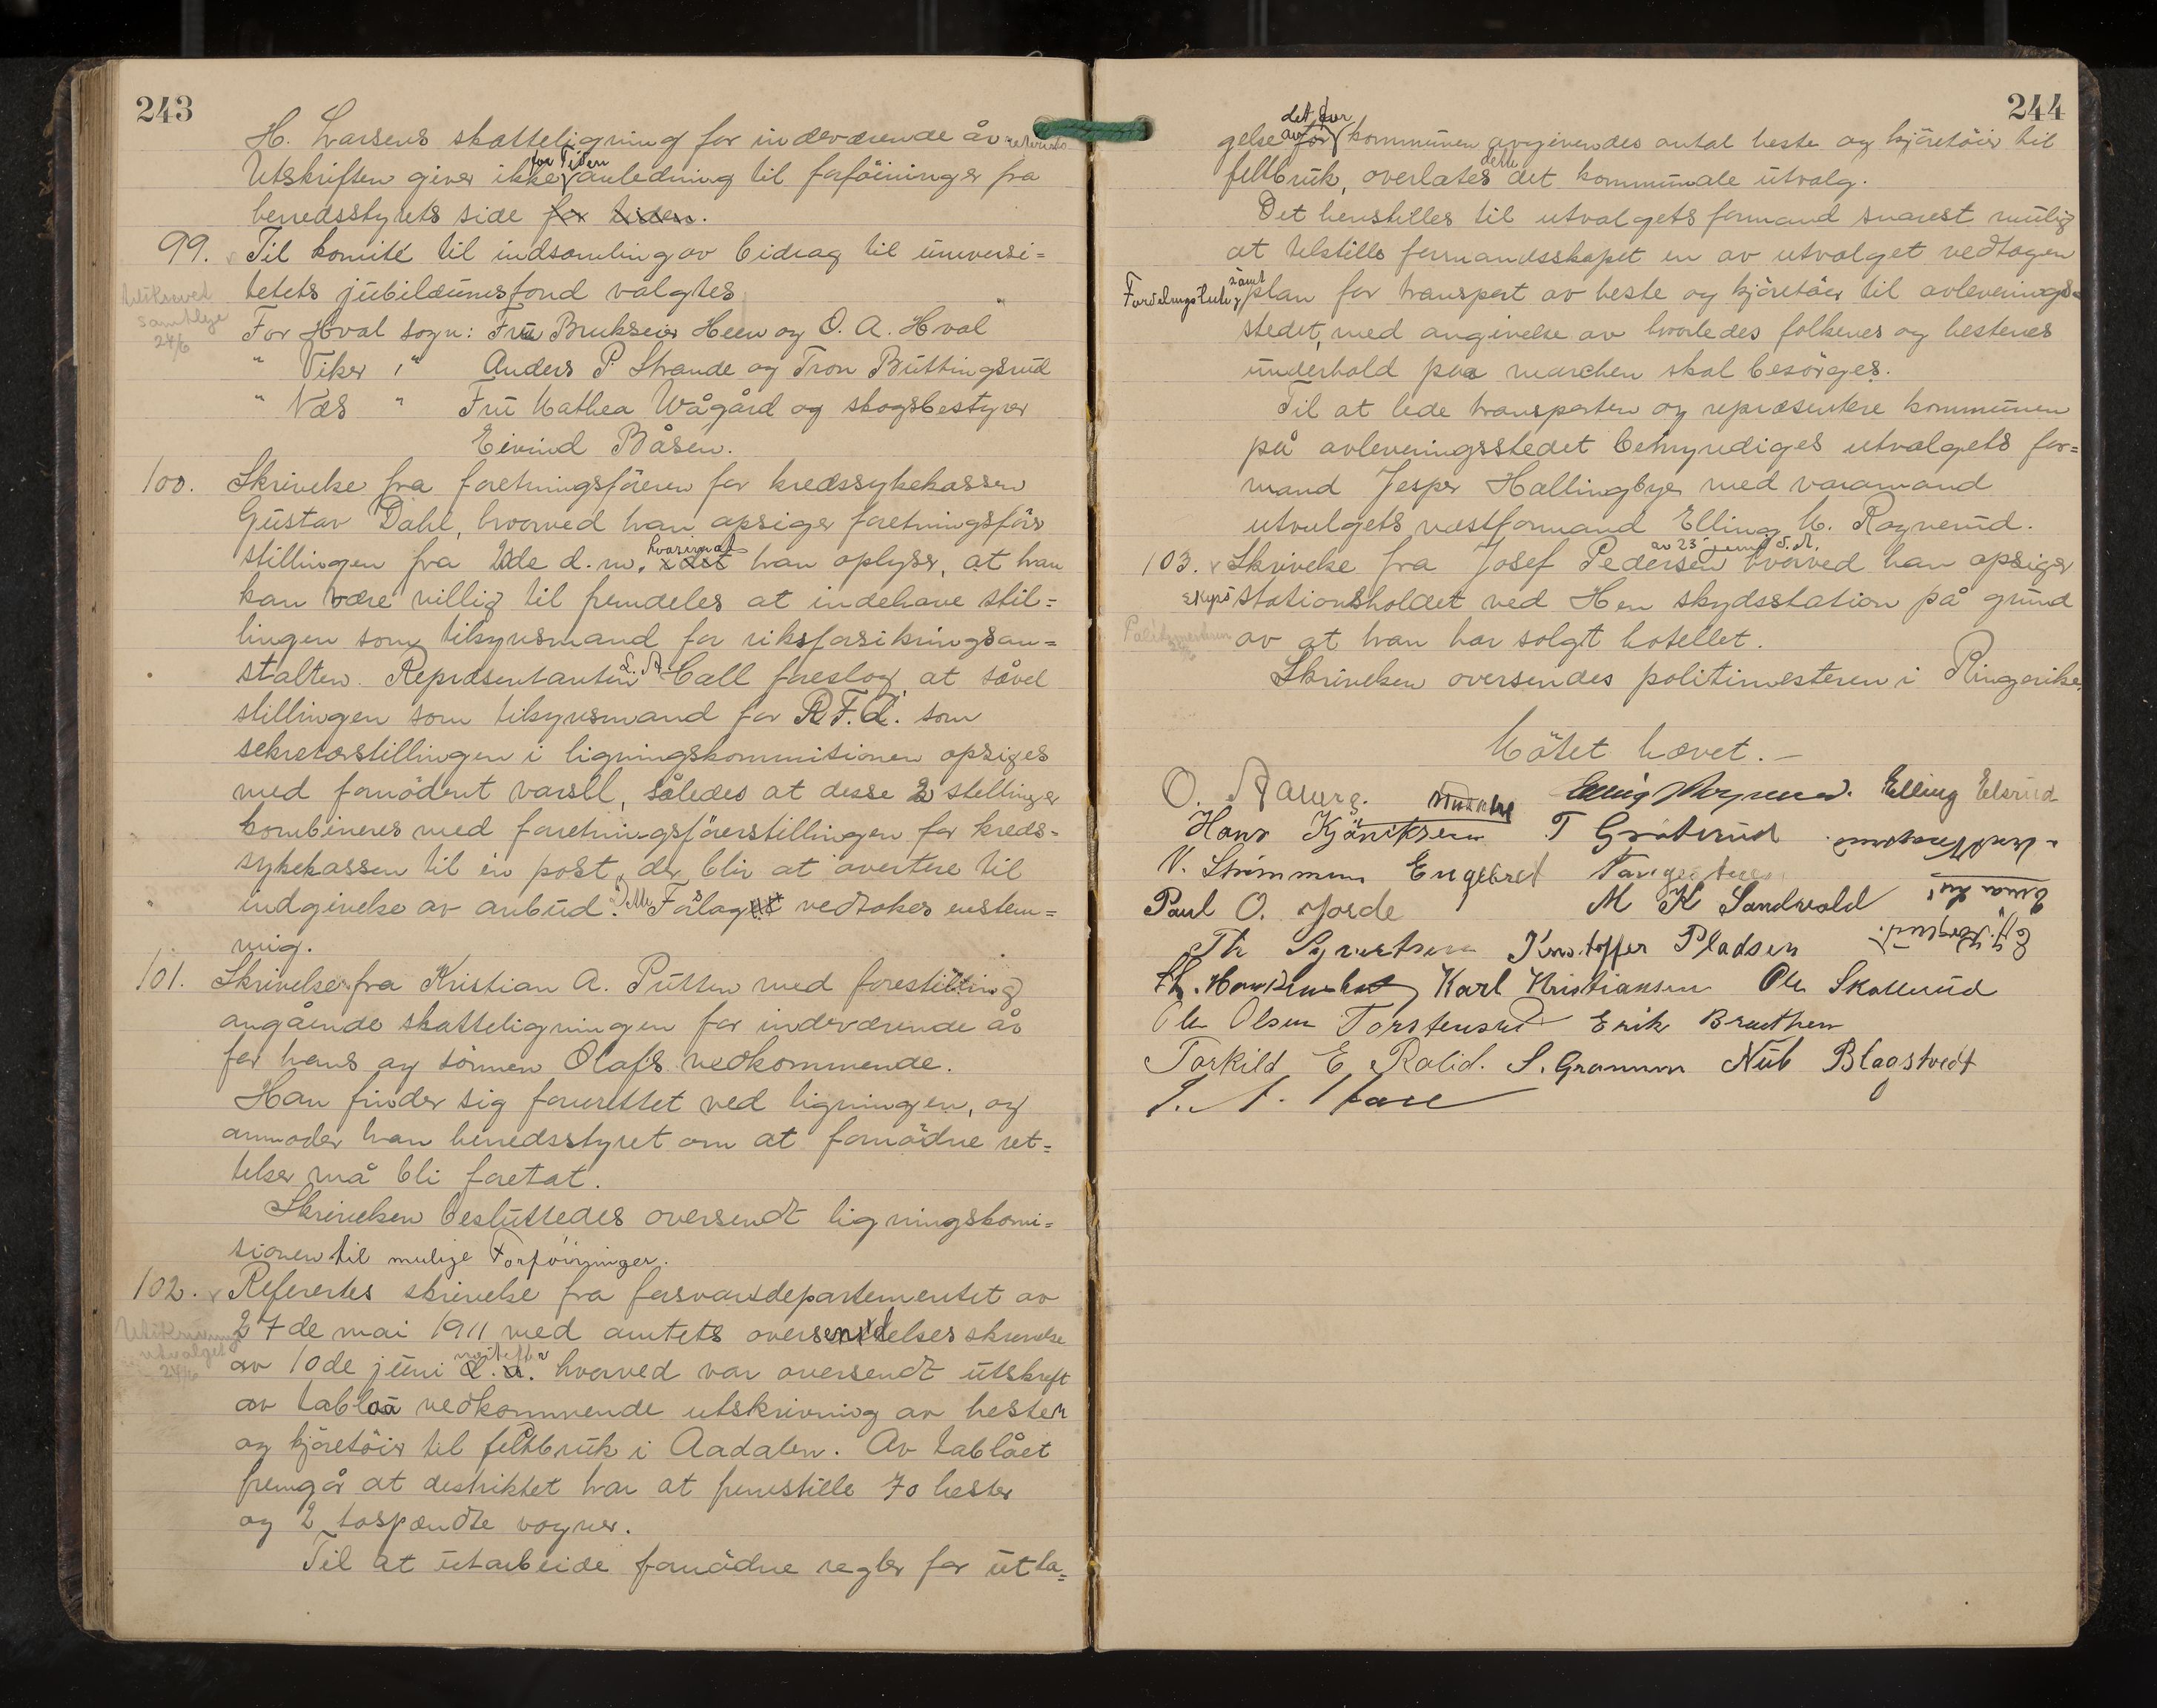 243
H. Larsens skatteligning for indeværende år refereredes
for Tiden
Utskriften giver ikke anledning til forföininger fra
herredsstyrets side for tiden.
99. Til komité til indsamling av bidrag til universi=
tetets jubilæumsfond valgtes
For Hval sogn: Fru Brukseier Heen og O. A. Hval
" Viker " Anders P. Strande og Tron Buttingsrud
" Næs " Fru Mathea Wågård og skogsbestyrer
Eivind Båsen.
Utskrevet
samtlige
24/6
100. Skrivelse fra foretningsföreren for kredssykekassen
Gustav Dahl, hvorved han opsiger foretningsförer
hvorimot
stillingen fra 2de d. m. han oplyser, at han
kan være villig til fremdeles at indehave stil=
lingen som tilsynsmand for riksforsikringsan=
stalten. Repræsentanten L. A. Hall foreslog, at såvel
stillingen som tilsynsmand for R. F. A. som
sekretærstillingen i ligningskommitionen opsiges
med fornödent varsel, således at desse 2 stillinger
kombineres med foretningsförerstillingen for kreds=
sykekassen til én post, der blir at avertere til
indgivelse av anbud. Dette Forslag vedtokes enstem=
mig.
101. Skrivelse fra Kristian A. Putten med forestilling
angående skatteligningen for indeværende år
for hans og sönnen Olafs vedkommende.
Han finder sig forurettet ved ligningen, og
anmoder han herredsstyret om at fornödne ret=
telser må bli foretat.
Skrivelsen besluttedes oversendt ligningskomi=
sionen til mulige Forföininger.
102. Referertes skrivelse fra forsvarsdepartementet av
27de mai 1911 med amtets oversendelsesskrivelse
næstefter
av 10de juni d. a. hvorved var oversendt utskrift
av tablaa vedkommende utskrivning av hester
og kjöretöier til feltbruk i Aadalen. Av tablået
fremgår at destriktet har at fremstille 70 hester
og 2 tospændte vogner.
Til at utarbeide fornödne regler for utla=
utvalget
24/6
244
det for
gelse av for kommunen avgivendes antal heste og kjöretöier til
dette
feltbruk, overlates det kommunale utvalg.
Det henstilles til utvalgets formand snarest mulig
at tilstille formandsskapet en av utvalget vedtagen
Fordelingsliste samt plan for transport av heste og kjöretöier til avleverings=
stedet, med angivelse av hvorledes folkenes og hestenes
underhold paa marchen skal besörges.
Til at lede transporten og repræsentere kommunen
på avleveringsstedet bemyndiges utvalgets for=
mand Jesper Hallingbye med varamand
utvalgets næstformand Elling M. Rognerud.
av 23 juni d. A.
103. Skrivelse fra Josef Pedersen hvorved han opsiger
skyds stationsholdet ved Hen skydsstation på grund
av at han har solgt hotellet.
Politimesteren
Skrivelsen oversendes politimesteren i Ringerike.
Mötet hævet.
O. Aaberg. Elling Elsrud
Hans Kjöniksen T Gråterud
V. Strömmen Engebret
Paul O. Jorde M K Sandvold
Th Syvertsen Kristoffer Pladsen
Karl Kristiansen Ole Skollerud
Ole Olsen Torstensrud Erik Braathen
Torkild E Rolid. S. Granum Nub Blagstvedt